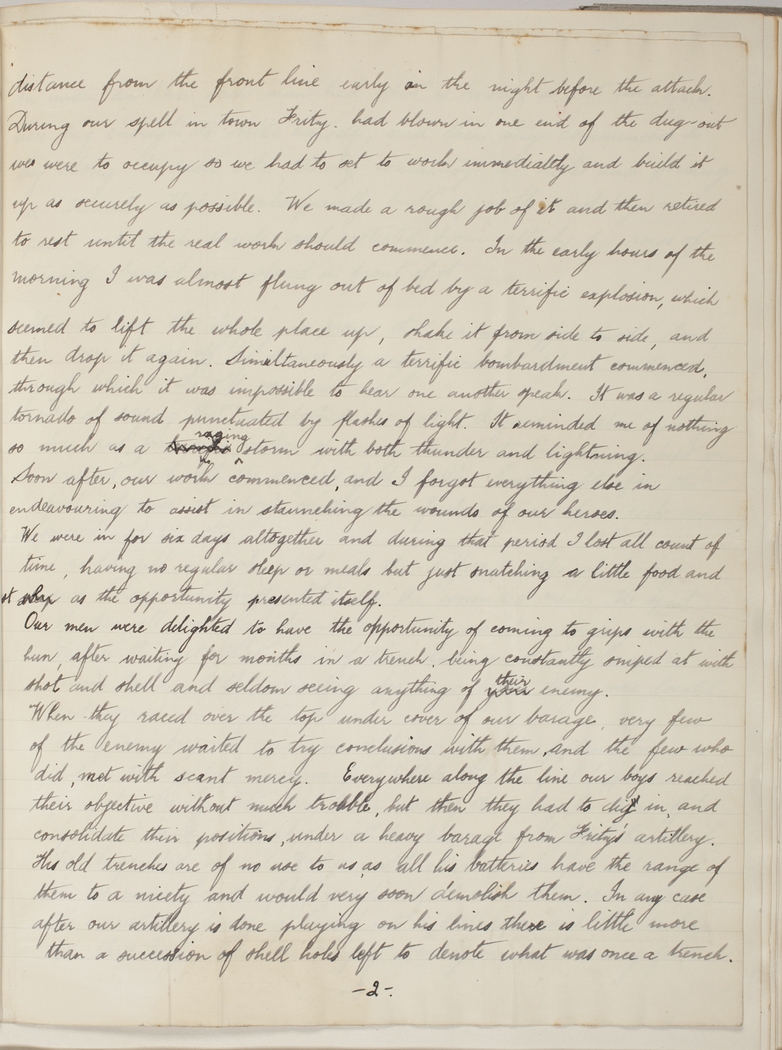 distance from the front line early in the night before the attack.
During our spell in town Frity. had blown in one end of the dug-out
we were to occupy so we had to set to work immediatly and build it
up as securely as possible. We made a rough job of it and then retired
to rest until the real work should commence. In the early hours of the
morning I was almost flung out of bed by a terrific explosion, which
seemed to lift the whole place up, shake it from side to side, and
then drop it again. Simultaneously a terrific bombardment commenced,
through which it was impossible to hear one another speak. It was a regular
tornado of sound punctuated by flashes of light. It reminded me of nothing
so much as a raging storm with both thunder and lightning.
Soon after, our work commenced, and I forgot everything else in
endeavouring to assist in staunching the wounds of our heroes.
We were in for six days altogether and during that period I lost all count of
time, having no regular sleep or meals but just snatching a little food and
as the opportunity presented itself.
Our men were delighted to have the opportunity of coming to grips with the
hun, after waiting for months in a trench, being constantly sniped at with
shot and shell and seldom seeing anything of their enemy.
When they raced over the top under cover of our barage, very few
of the enemy waited to try conclusions with them, and the few who
did, met with scant mercy. Everywhere along the line our boys reached
their objective without much trouble, but then they had to dig in, and
consolidate their positions, under a heavy barage from Frity's artillery.
His old trenches are of no use to us, as all his batteries have the range of
them to a nicety and would very soon demolish them. In any case
after our artillery is done playing on his lines there is little more
than a succession of shell holes left to denote what was once a trench.
-2-.